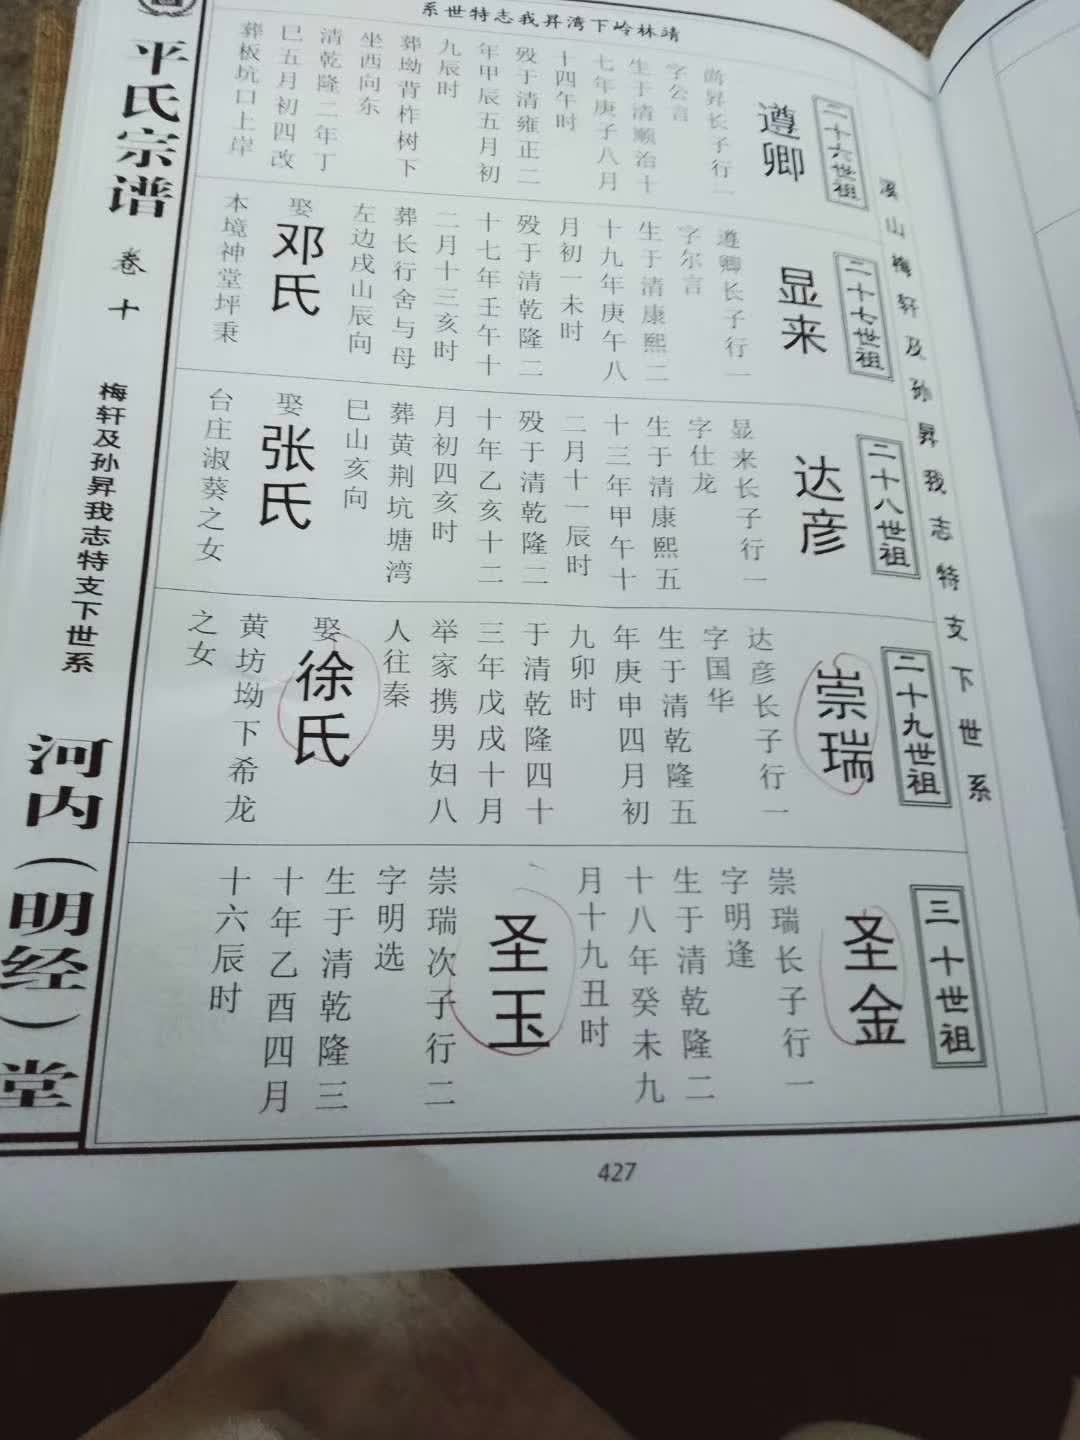 靖林岭下湾昇我志特世系
溪山梅轩及孙昇我志特支下世系
二十六世祖
遵卿
尚昇长子行一
字公言
生于清顺治十
七年庚子八月
十四午时
殁于清雍正二
年甲辰五月初
九辰时
葬坳背柞树下
坐西向东
清乾隆二年丁
巳五月初四改
葬板坑口上岸
二十七世祖
显来
遵卿长子行一
字尔言
生于清康熙二
十九年庚午八
月初一未时
殁于清乾隆二
十七年壬午十
二月十三亥时
葬长行舍与母
左边戌山辰向
娶
邓氏
本境神堂坪秉
二十八世祖
达彦
显来长子行一
字仕龙
生于清康熙五
十三年甲午十
二月十一辰时
殁于清乾隆二
十年乙亥十二
月初四亥时
葬黄荆坑塘湾
巳山亥向
娶
张氏
台庄淑葵之女
二十九世祖
崇瑞
达彦长子行一
字国华
生于清乾隆五
年庚申四月初
九卯时
于清乾隆四十
三年戊戌十月
举家携男妇八
人往秦
娶
徐氏
黄坊坳下希龙
之女
三十世祖
圣金
崇瑞长子行一
字明逢
生于清乾隆二
十八年癸未九
月十九丑时
圣玉
崇瑞次子行二
字明选
生于清乾隆三
十年乙酉四月
十六辰时
平氏宗谱
卷十
梅轩及孙昇我志特支下世系
河内（明经）堂
427